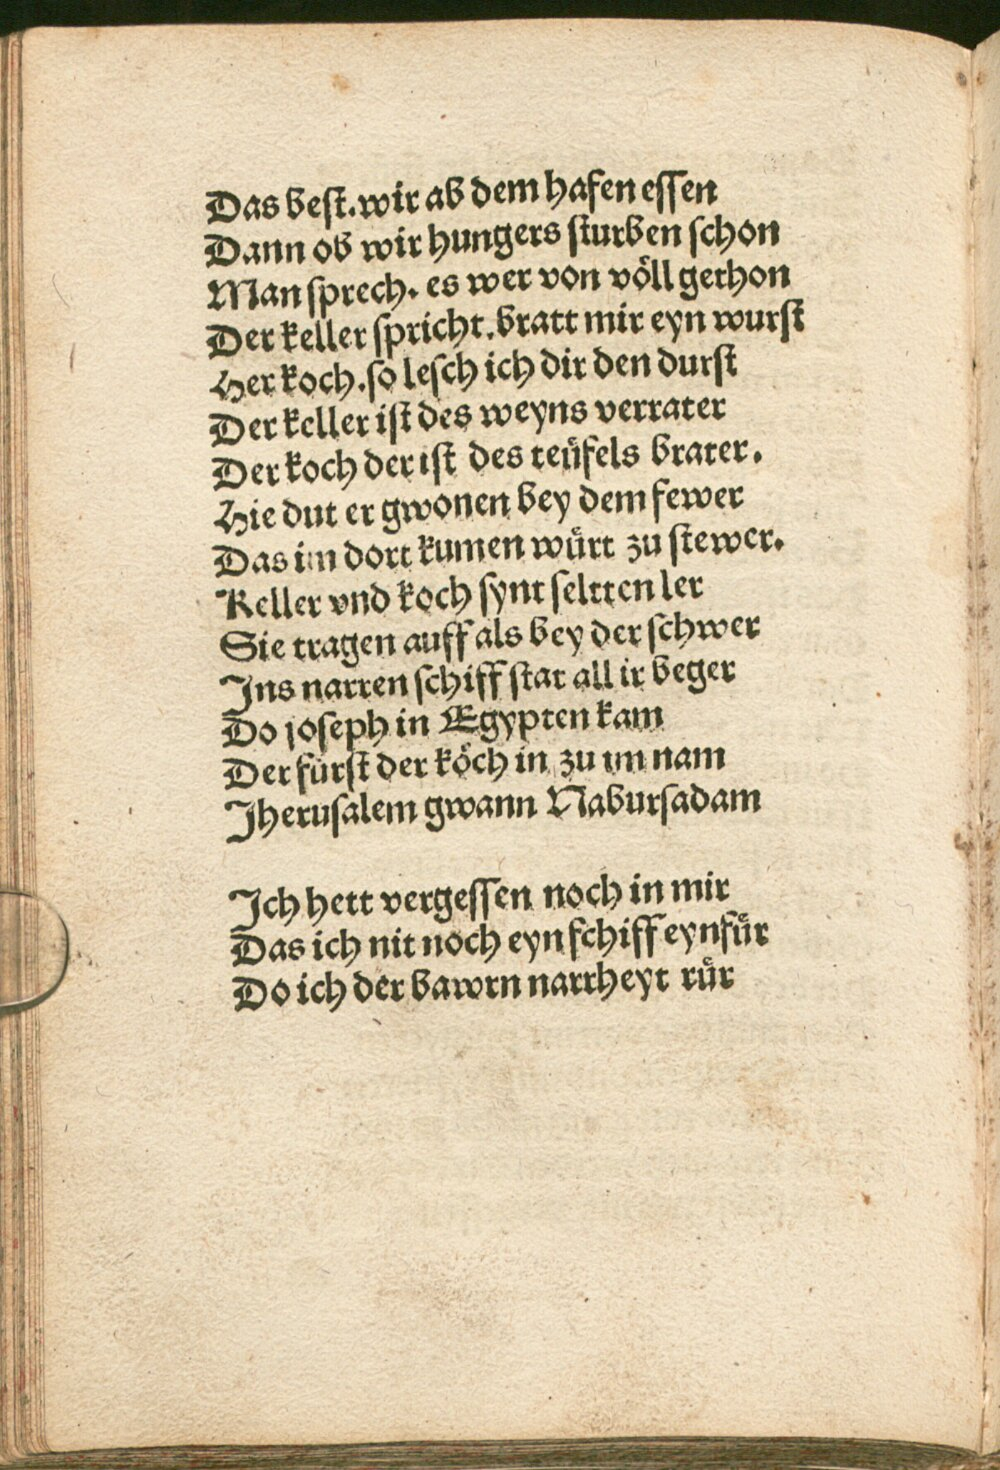 Das best. wir ab dem hafen essen
Dann ob wir hungers sturben schon
Man sprech. es wer von völl gethon
Der keller spricht. bratt mir eyn wurst
Her koch. so lesch ich dir den durst
Der keller ist des weyns verrater
Der koch der ist des teüfels brater.
Hie dut er gwonen bey dem fewer
Das im dort kumen würt zu stewer.
Keller vnd koch synt seltten ler
Sie tragen auff als bey der schwer
Jns narren schiff stat all ir beger
Do joseph in Egypten kam
Der fürst der köch in zu im nam
Jherusalem gwann Nabursadam

Jch hett vergessen noch in mir
Das ich nit noch eyn schiff eynfür
Do ich der bawrn narrheyt rür